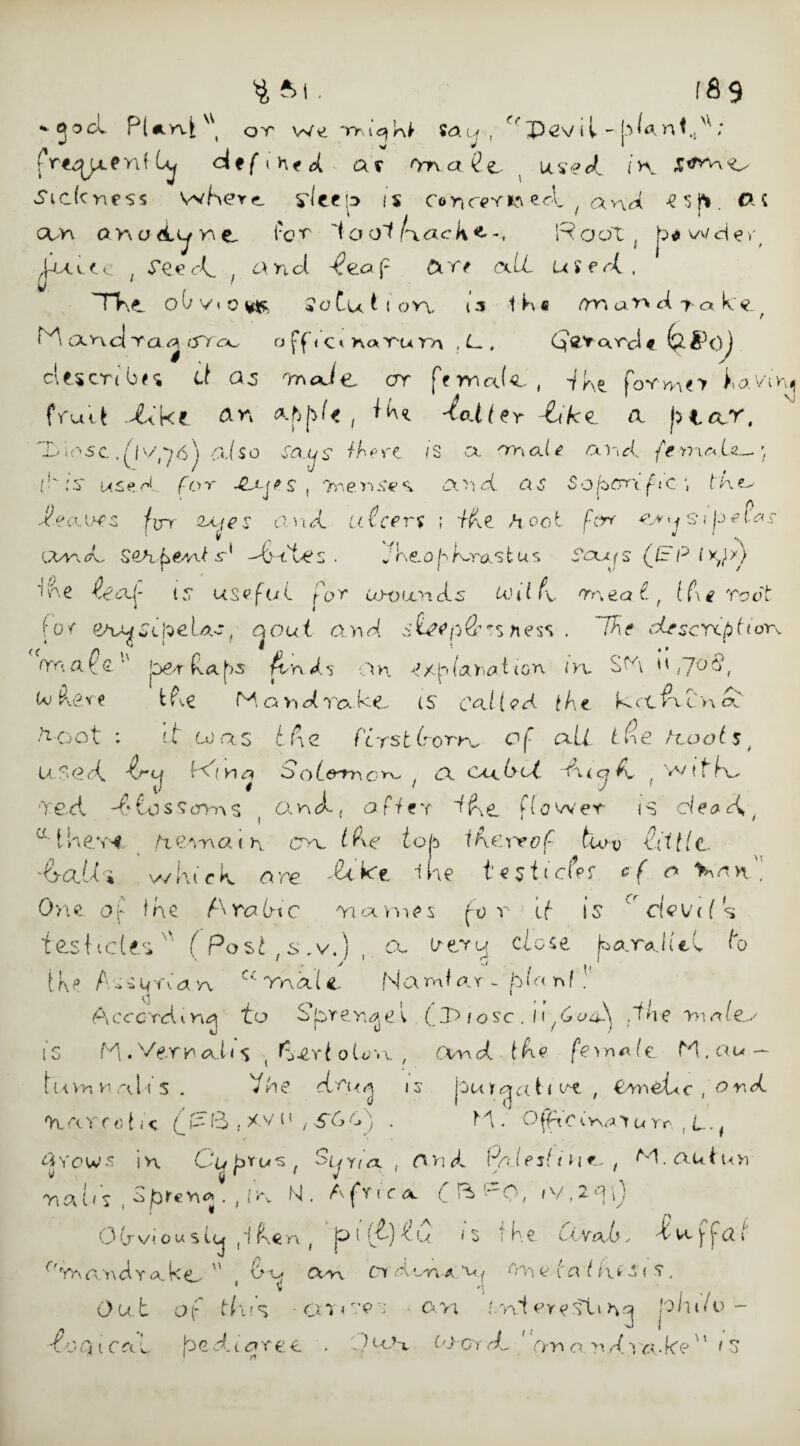 § 51. 189
"god Plant", or we might say, "Devil-plant,";
frequently defined as male, used in some
sickness where sleep is concerned, and esp. as
an anodyne for toothache-, Root, powder,
juice, seed, and leaf are all used.
The obvious solution is the mandrake,
Mandragora officinarum, L. Gerarde
describes it as male or female, the former having
fruit like an apple, the latter like a pear.
Diosc. (IV,76) also says there is a male and female;
it is used for eyes, menses and as soporific; the
leaves for eyes and ulcers; the root for erysipelas
and serpents' bites. Theophrastus says (EP ix,)
the leaf is useful for wounds with meal, the root
for erysipelas, gout and sleepless ness. The description
"male" perhaps finds an explanation in SM ii,708,
where the Mandrake is called the
root: it was the firstborn of all the roots,
used by King Solomon, a cubit high, with
red blossoms, and, after the flower is dead,
"there remain on the top thereof two little
balls which are like the testicles of a man".
One of the Arabic names for it is "devil's
testicles" (Post, s.v.), a very close parallel to
the Assyrian "male Namtar-plant".
According to Sprengel (Diosc. ii,604), the male
is M. Vernalis, Bertolon, and the female M. au-
tumnalis. The drug is purgative, emetic, and
narcotic (EB, XVII, 566). M. Officinarum, L.,
grows in Cyprus, Syria, and Palestine, M. autum
nalis, Spreng., in N. Africa (BEO, IV, 291)
Obviously, then, pi(l)lu is the Arab. luffah
"mandrake", by an ordinary metathesis.
Out of this arises an interesting philo-
logical pedigree. Our word "mandrake" is